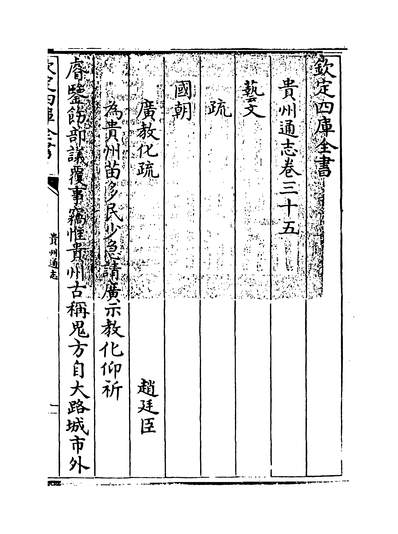 欽定四庫全書
貴州通志卷三十五
藝文
疏
國朝
廣教化疏 趙廷臣
為貴州苗多民少急請廣示教化仰祈
睿鑒飭部議覆事竊惟貴州古稱鬼方自大路城市外
欽定四庫全書
貴州通志
一